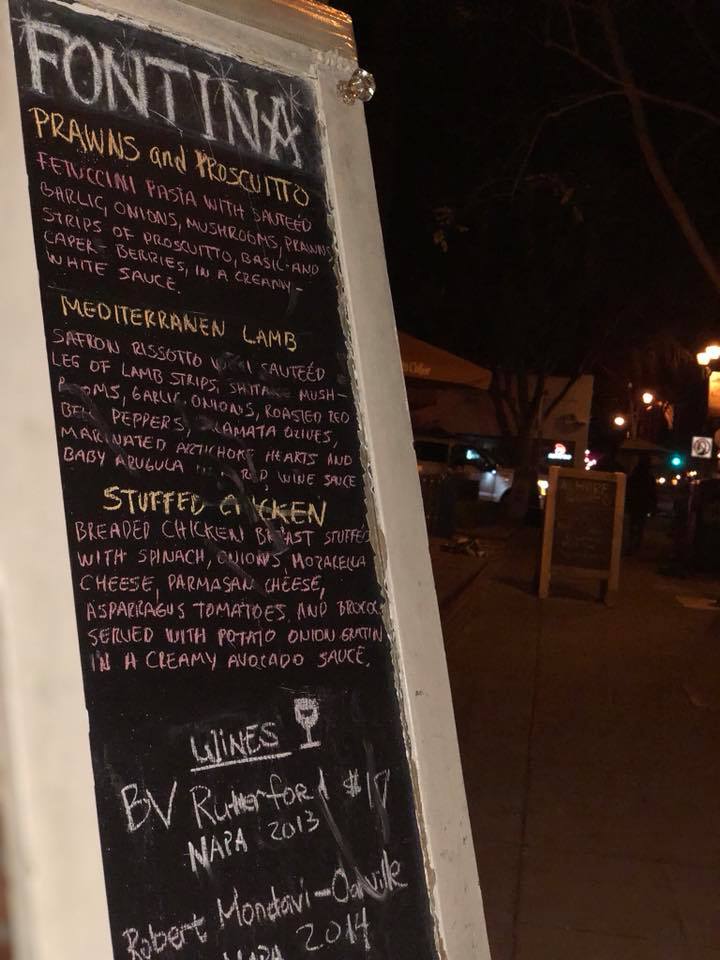 FONTINA
PRAWNS and PROSCUITTO
FETUCCINI PASTA WITH SAUTEÉD
GARLIC, ONIONS, MUSHROOMS, PRAWNS
STRIPS OF PROSCUITTO, BASIL AND
CAPER- BERRIES, IN A CREAMY-
WHITE SAUCE.
MEDITERRANEN LAMB
SAFRON RISSOTTO SAUTEÉD
LEG OF LAMB STRIPS, SHITAKE MUSH-
GARLIC, ONIONS, ROASTED RED
BELL PEPPERS, OLIVES,
MARINATED ARTICHOKE HEARTS AND
BABY ARUGULA RED WINE SAUCE
STUFFED CHICKEN
BREADED CHICKEN BREAST STUFFED
WITH SPINACH, ONIONS, MOZARELLA
CHEESE, PARMASAN CHEESE,
ASPARRAGUS TOMATOES, AND
SERVED WITH POTATO ONION GRATIN
IN A CREAMY AVOCADO SAUCE.
WINES
BV Rutherford
NAPA 2013
Robert Mondavi-Oakville
NAPA 2014